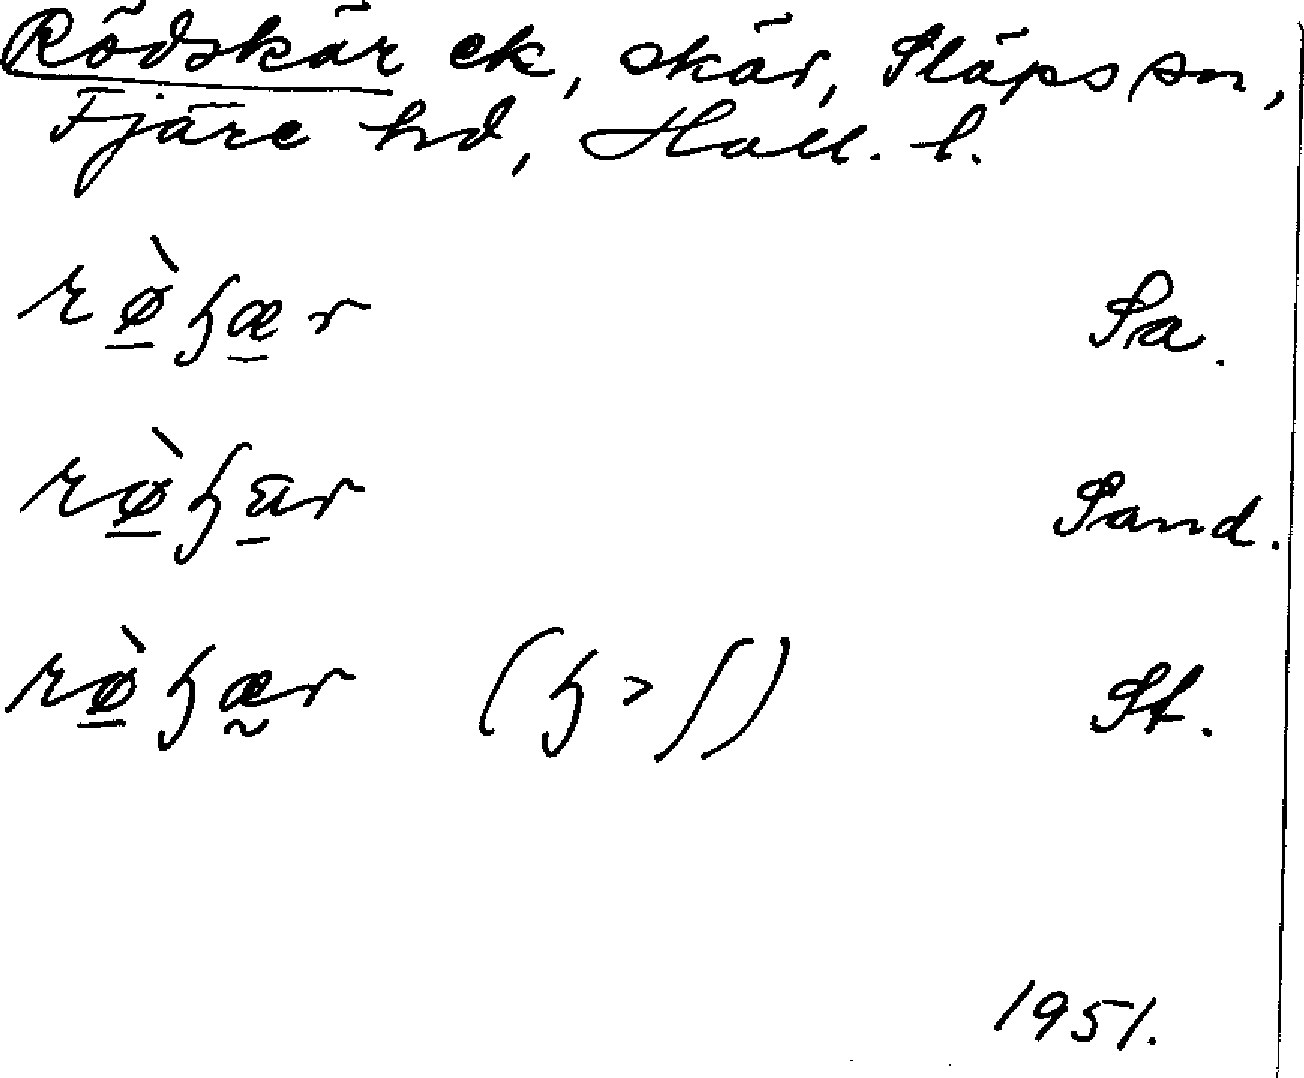 Rödskär ek, skär, Släps sn,
Fjäre hd, Hall. l.
rø̠̀ɧæ̠r Sa.
rø̠̀ɧa̠r Sand.
rø̠̀ɧæ̰r (ɧ > ʃ) St.
1951.